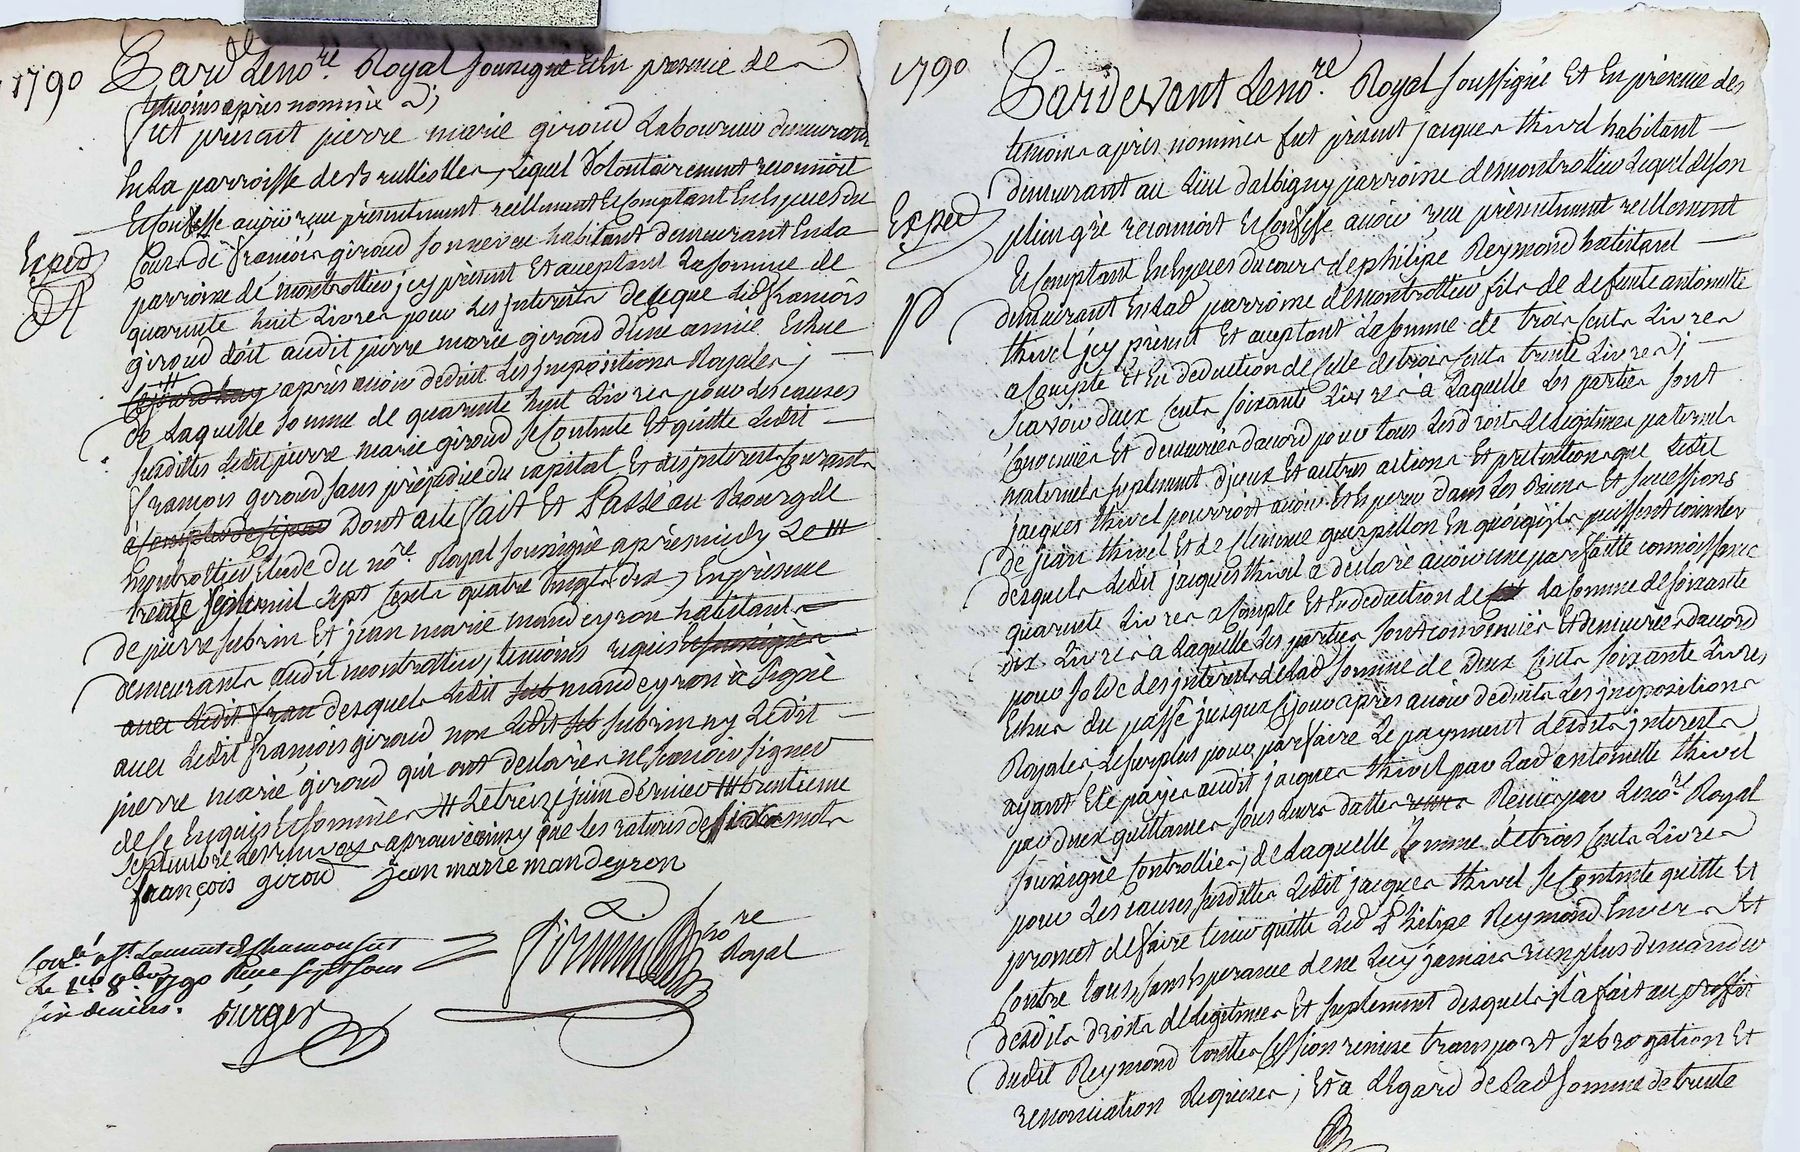 1790
Pard.t Le no.re Royal soussigné Et En presence de
temoins après nommés
fut present pierre marie giroud Laboureur demeurant
En La parroisse de Brulliolles, Lequel Volontairement reconnoit
Et Confesse avoir reçu présentement reellement Et Comptant En Especes du
Cours de françois giroud son neveu habitant demeurant En la
Exped
parroisse de montrottier jcy présent Et aceptant La somme de
quarante huit Livres pour Les jnterests de ce que Led françois
giroud doit audit pierre marie giroud d'une année Echue
après avoir deduit Les jmpositions Royales ;
de Laquelle somme de quarante huit Livres pour Les causes
susdittes Ledit pierre marie giroud se Contente Et quitte Ledit
françois giroud sans préjudice du capital Et des jnterests Courants
Dont acte fait Et Passé au Bourg de
montrottier Etude du no.re Royal soussigné après midy Le
trente mil sept Cents quatre vingts dix, En présence
de pierre subrin Et jean marie mandeyron habitants
demeurants audit montrottier, temoins requis Et soussignés
avec Ledit fran desquels Ledit sub mandeyron à signé
avec Ledit françois giroud non Ledit sub subrin ny Ledit
pierre marie giroud qui ont declarés ne sçavoir signer
de ce Enquis Et sommés # Le treize juin dernier ## trentieme
septembre Les renvoys aprouvés ainsy que les ratures de mots
françois giroud jean marie mandeyron
Con.lé a St. Laurent de Chamousset
Le 1.er 8.bre 1790 Reçu sept sous
six deniers.
no.re
Royal
1790
Pardevant Le no.re Royal soussigné Et En présence des
temoins après nommés fut présent jacques thivel habitant
demeurant au Lieu dalbigny parroisse de montrottier Lequel de son
Exped
plein gré reconnoit Et Confesse avoir reçu présentement reellement
Et Comptant En Especes du cours de philipe Reymond habitant
demeurant En Lad parroisse de montrottier fils de defunte antoinette
thivel jcy présent Et aceptant La somme de trois Cents Livres
a Compte Et En deduction de celle de trois Cents trente Livres ;
sçavoir deux Cents soixante Livres a Laquelle Les parties sont
Convenües Et demeurées dacord pour tous Les droits de Legitimes paternels
maternels suplement d'jceux Et autres actions Et pretentions que Ledit
jacques thivel pourroit avoir Et Esperer dans Les Biens Et successions
de jean thivel Et de Clemence En quoi qu'ils puissent consister
desquels Ledit jacques thivel a declaré avoir une parfaitte connoissance
quarante Livres a Compte Et En deduction de La somme de soixante
dix Livres à Laquelle Les parties sont convenües Et demeurées dacord
pour solde des jnterests de Lad somme de Deux Cents soixante Livres
Echus du passé jusqua Ce jour après avoir deduits Les jmpositions
Royales, Le surplus pour parfaire Le payement desdits jnterests
ayant Eté payés audit jacques thivel par Lad antoinette thivel
par deux quittances sous Leurs dattes Reçües par Le no.re Royal
soussigné Controllées ; de Laquelle somme de trois Cents Livres
pour Les causes susdittes Ledit jacques thivel se Contente quitte Et
promet de faire tenir quitte Led Philipe Reymond Envers Et
Contre tous, sans Esperance de ne Luy jamais rien plus demander
desdits droits de Legitimes Et suplement desquels jl à fait au proffit
dudit Reymond touttes Cession remise transport subrogation Et
renonciation Requises ; Et à L'Egard de Lad somme de trente